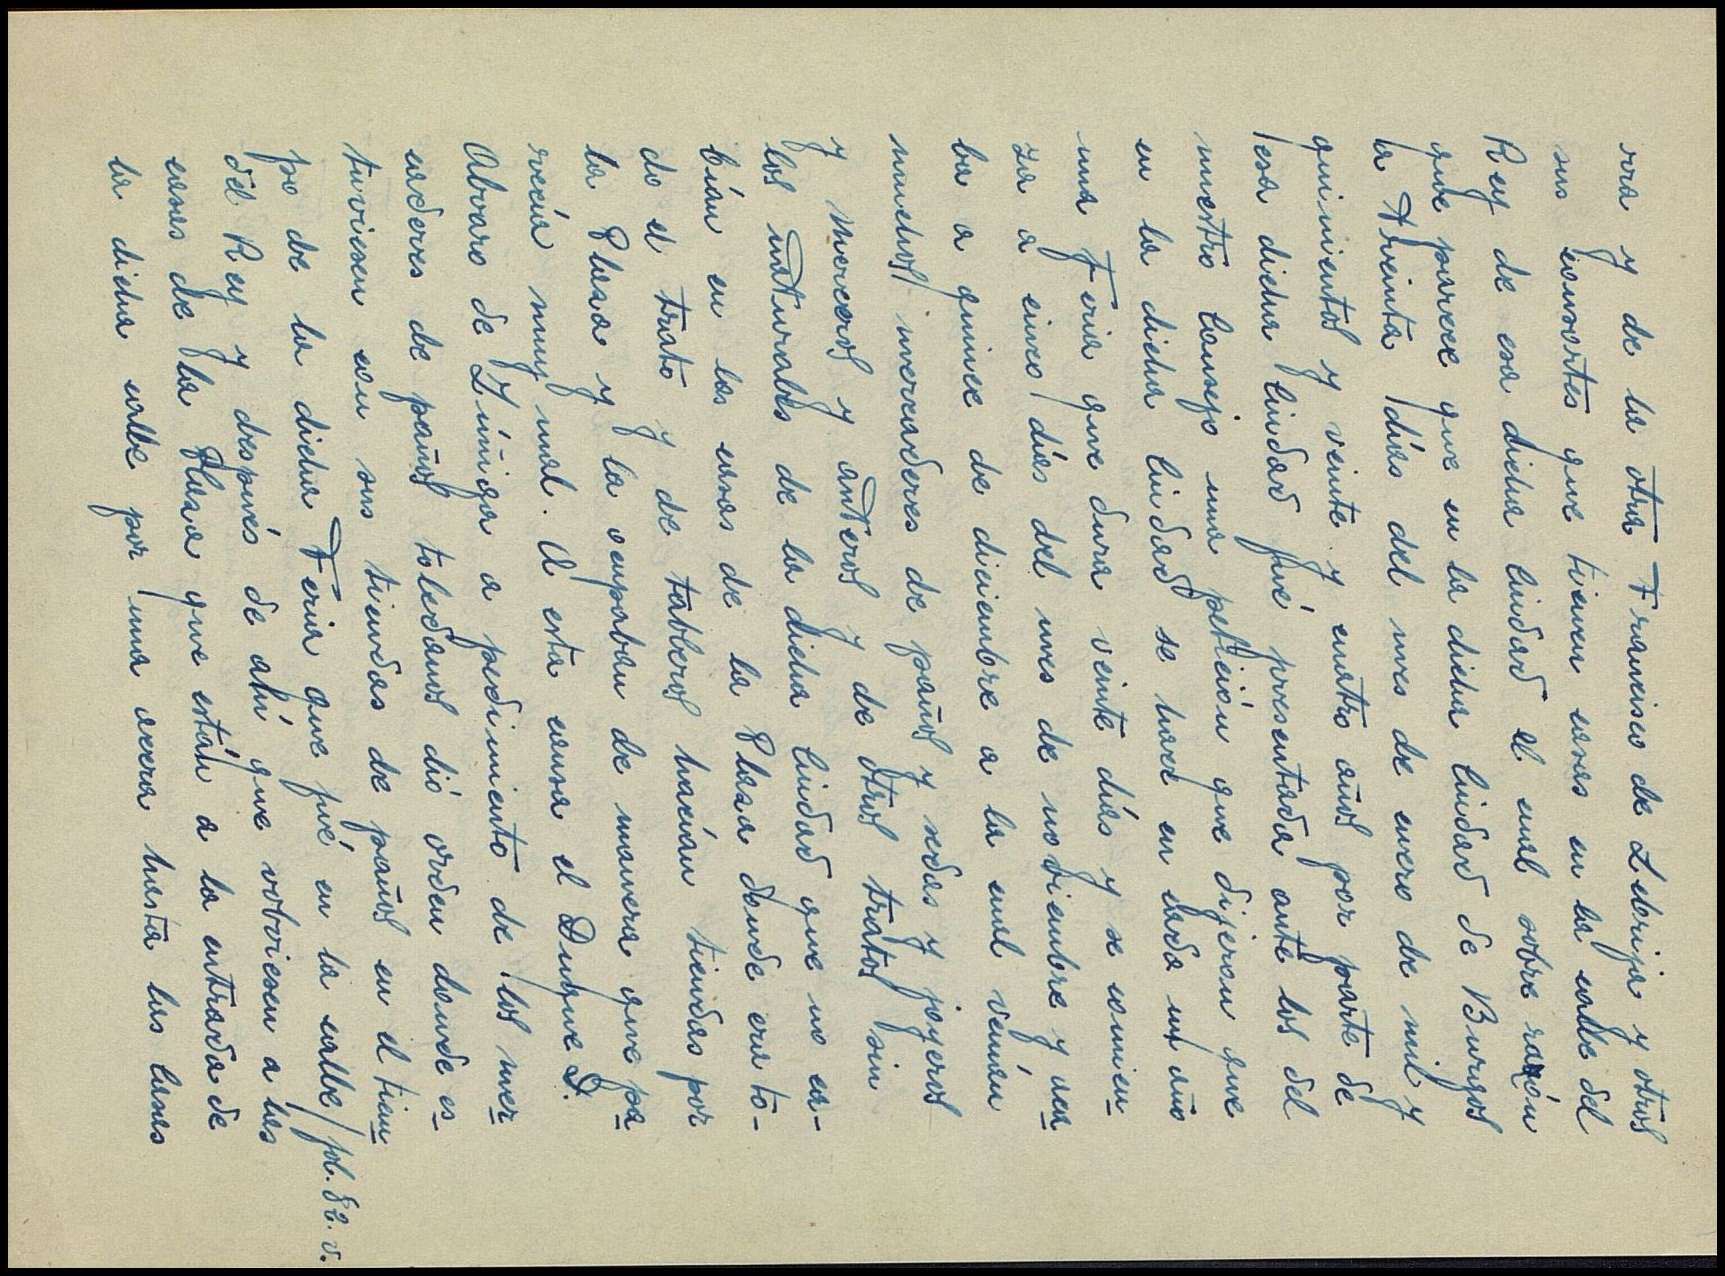 rra y de la otra Francisco de Lebrija y otros
sus consortes que tienen casas en la calle del
Rey de esa dicha ciudad el cual sobre razón
que parece que en la dicha ciudad de Burgos
a treinta días del mes de enero de mil y
quinientos y veinte y cuatro años por parte de
esa dicha ciudad fué presentada ante los del
nuestro Consejo una petición que dijeron que
en la dicha ciudad se hace en cada un año
una Feria que dura veinte días y se comien-
za a cinco días del mes de noviembre y aca
ba a quince de diciembre a la cual venían
muchos mercaderes de paños y sedas y joyeros
y merceros y de otros tratos sin
los naturales de la dicha ciudad que no ca-
bían en las casas de la Plaza donde era to-
do el trato y de tableros hacían tiendas por
la Plaza y la ocupaban de manera que pa
recía muy mal. A esta causa el Duque D.
Alvaro de Zúñiga a pedimiento de los mer
caderes de paños toledanos dió orden donde es-
tuviesen con sus tiendas de paños en el tiem
po de la dicha Feria que fué en la calle/fol. 82. v.
del Rey y después de ahí que volviesen a las
casas de la Plaza que están a la entrada de
la dicha calle por una acera hasta las casas